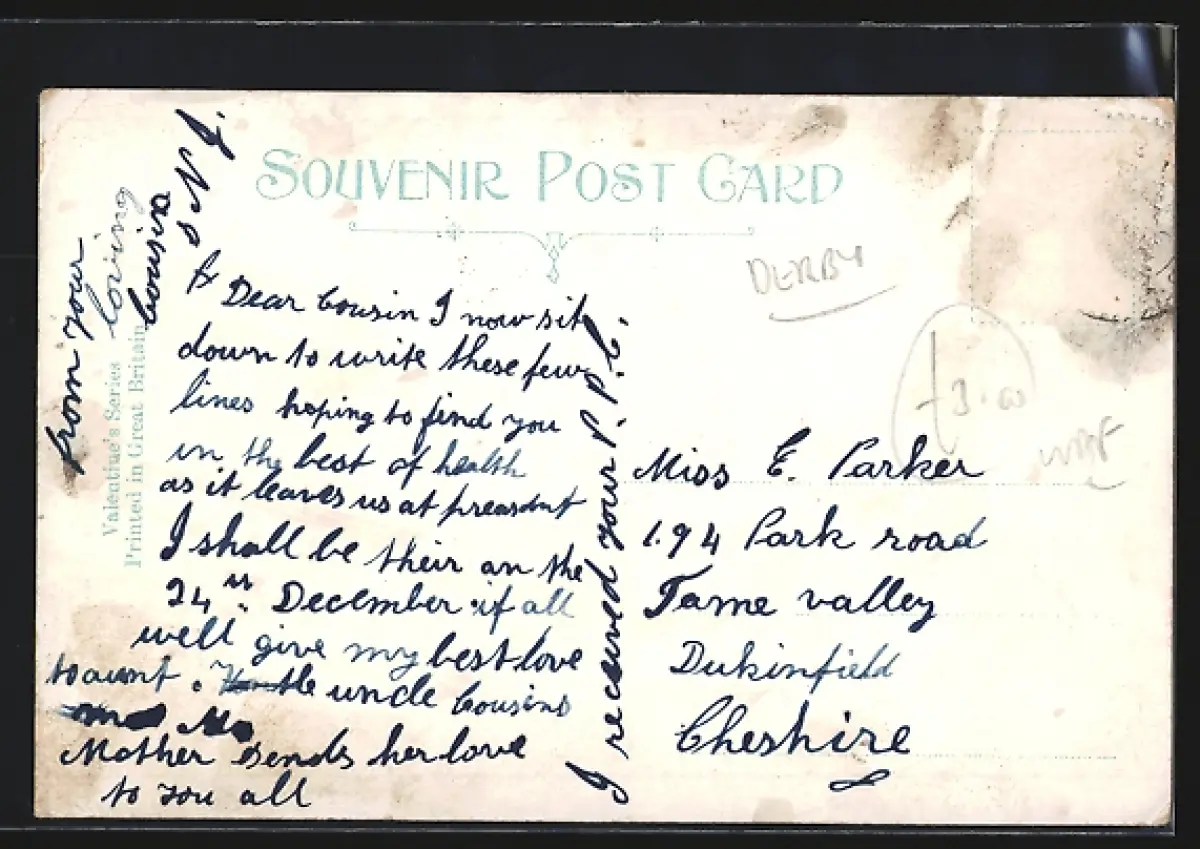 SOUVENIR POST CARD
DERBY
£3.00
Dear Cousin I now sit
down to write these few
lines hoping to find you
in the best of health
as it leaves us at preasant
I shall be their on the
24th. December if all
well give my best love
to aunt. uncle Cousins
Mother sends her love
to you all
from your
loving
Cousin
I received your P.P.C.
Miss E. Parker
194 Park road
Tame valley
Dukinfield
Cheshire
Valentine's Series
Printed in Great Britain